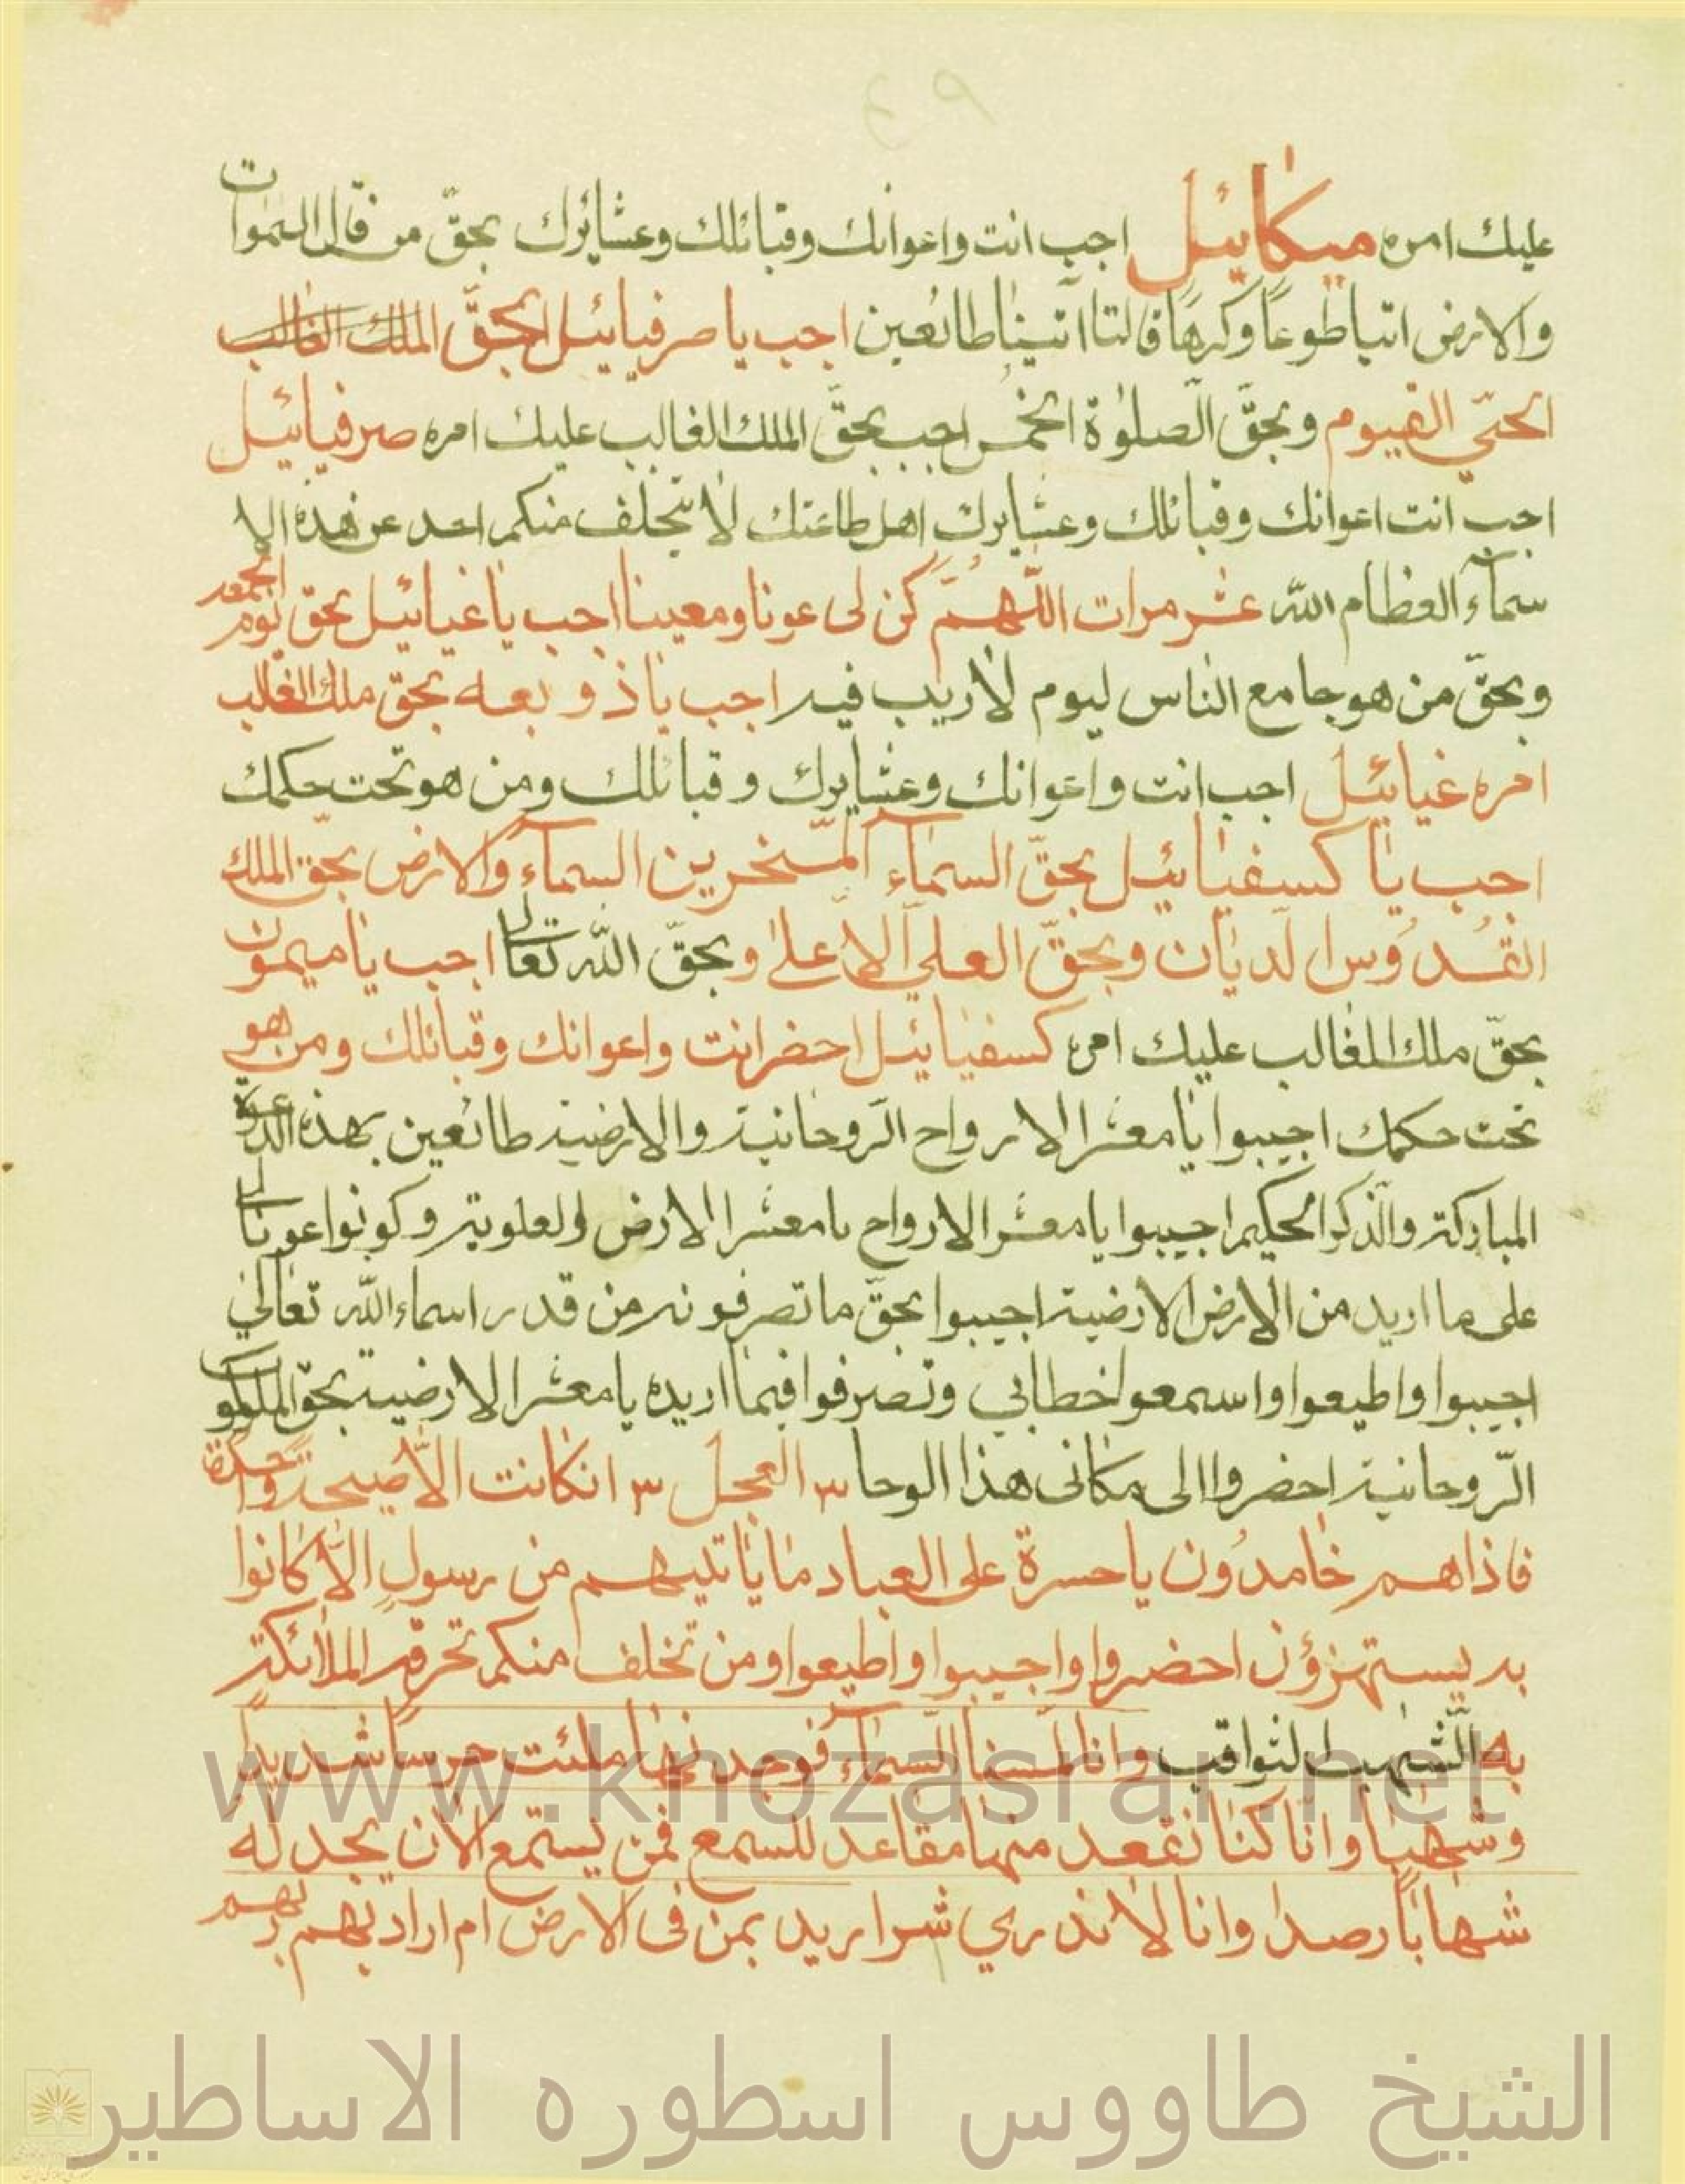 عليك امره ميكائيل اجب انت واعوانك وقبائلك وعشايرك بحقّ من قال السموات
والارض ائتيا طوعاً وكرهاً قالتا اتينا طائعين اجب يا صرفيائيل بحقّ الملك الغالب
الحيّ القيوم وبحقّ الصلوة الخمس اجب بحقّ الملك الغالب عليك امره صرفيائيل
اجب انت اعوانك وقبائلك وعشايرك اهل طاعتك لا يتخلف منكم احد عن هذه الا
سماء العظام الله عشر مرات اللّهمّ كن لى عونا ومعينا اجب يا غيائيل بحق يوم الجمعه
وبحقّ من هو جامع الناس ليوم لاريب فيه اجب يا ذوبعه بحقّ ملك الغالب
امره غيائيل اجب انت واعوانك وعشايرك وقبائلك ومن هو تحت حكمك
اجب يا كسفيائيل بحقّ السماء المسخرين السماء والارض بحقّ الملك
القُدوُس الديان وبحقّ العلي الاعلى وبحقّ الله تعالى اجب يا ميمون
بحقّ ملك الغالب عليك امره كسفيائيل احضر انت واعوانك وقبائلك ومن هو
تحت حكمك اجيبوا يا معشر الارواح الروحانية والارضية طائعين بهذه الدعوة
المباركة والذكر الحكيم اجيبوا يا معشر الارواح يا معشر الارض والعلوية وكونوا عونا لى
على ما اريد من الارض الارضية اجيبوا بحقّ ما تصرفونه من قدر اسماء الله تعالى
اجيبوا واطيعوا واسمعوا خطابي وتصرفوا فيما اريده يا معشر الارضية بحق الملكوت
الرّوحانية احضروا الى مكانى هذا الوحا ٣ العجل ٣ ان كانت الاّ صيحةً واحدةً
فاذاهم خامدُون يا حسرة على العباد ما يا تيهم من رسولٍ الاّ كانوا
به يستهزؤن احضروا واجيبوا واطيعوا ومن تخلف منكم تحرقه الملائكة
به الشّهب الثواقب وانا لمسنا السّماء فوجدنها ملئت حرساً شديداً
وشهبا وانّا كنا نقعد منها مقاعد للسمع فمن يستمع الان يجد له
شهاباً رصدا وانا لا ندري شرا ريد بمن فى الارض ام اراد بهم ربهم
www.knozasrar.net
الشيخ طاووس اسطوره الاساطير